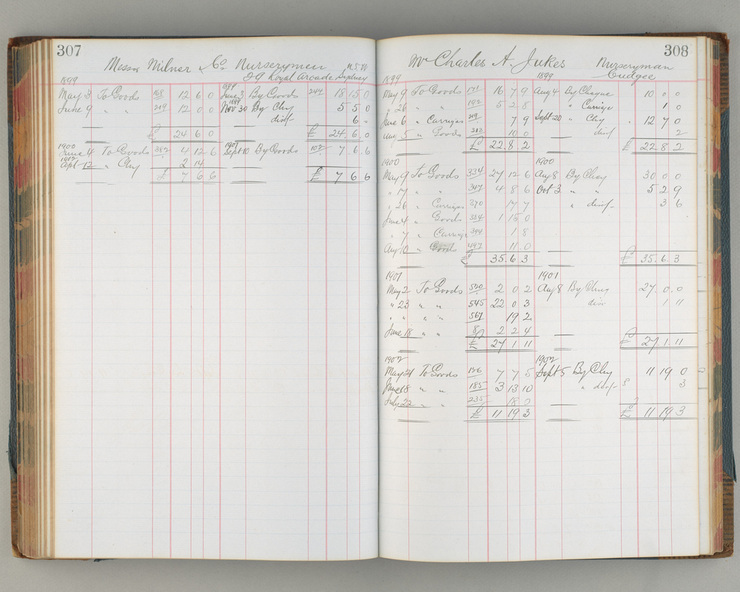 307
Messrs Milner & Co Nurserymen N.S.W
I.G. Royal Arcade Sydney
1899
May 3 To Goods 12 6 0 June 3 By Goods 242 18 15 0
June 9 " 249 12 0 0 Nov 30 By Chq 5 5 0
disct 6 "
£ 24 6 0 £ 24 6 0
1900
June 4 To Goods 4 12 6 Sept 10 By Goods 7 6 6
Sept 12 " Chq 2 14
£ 7 6 6 £ 7 6 6
308
Mr Charles A. Jukes Nurseryman
Cudgee
1899 1899
May 9 To Goods 16 7 9 Aug 4 By Cheque 10 0 0
" 26 " 5 2 8 " Carriage 1 0
June 6 " Carriage 7 9 Sept 20 " Chq 12 7 0
Aug 5 " Goods 10 0 disct 2
£ 22 8 2 £ 22 8 2
1900 1900
May 9 To Goods 334 27 12 6 Aug 8 By Chq 30 0 0
" 17 " " 347 4 8 6 Oct 3 " " 5 2 9
" 26 " Carriage 370 17 7 " disct 3 6
June 4 " Goods 384 1 15 0
" 7 " Carriage 394 1 8
Aug 10 " Goods 447 11 0
£ 35 6 3 £ 35 6 3
1901 1901
May 2 To Goods 520 2 0 2 Aug 8 By Chq 27 0 0
" 23 " " 545 22 0 3 disct 1 11
" " " " 567 19 2
June 18 " " 2 2 4
£ 27 1 11 £ 27 1 11
1902 1902
May 21 To Goods 146 7 7 5 Sept 5 By Chq 11 19 0
June 18 " " 185 3 13 10 " disct 3
July 22 " " 235 18 0
£ 11 19 3 £ 11 19 3